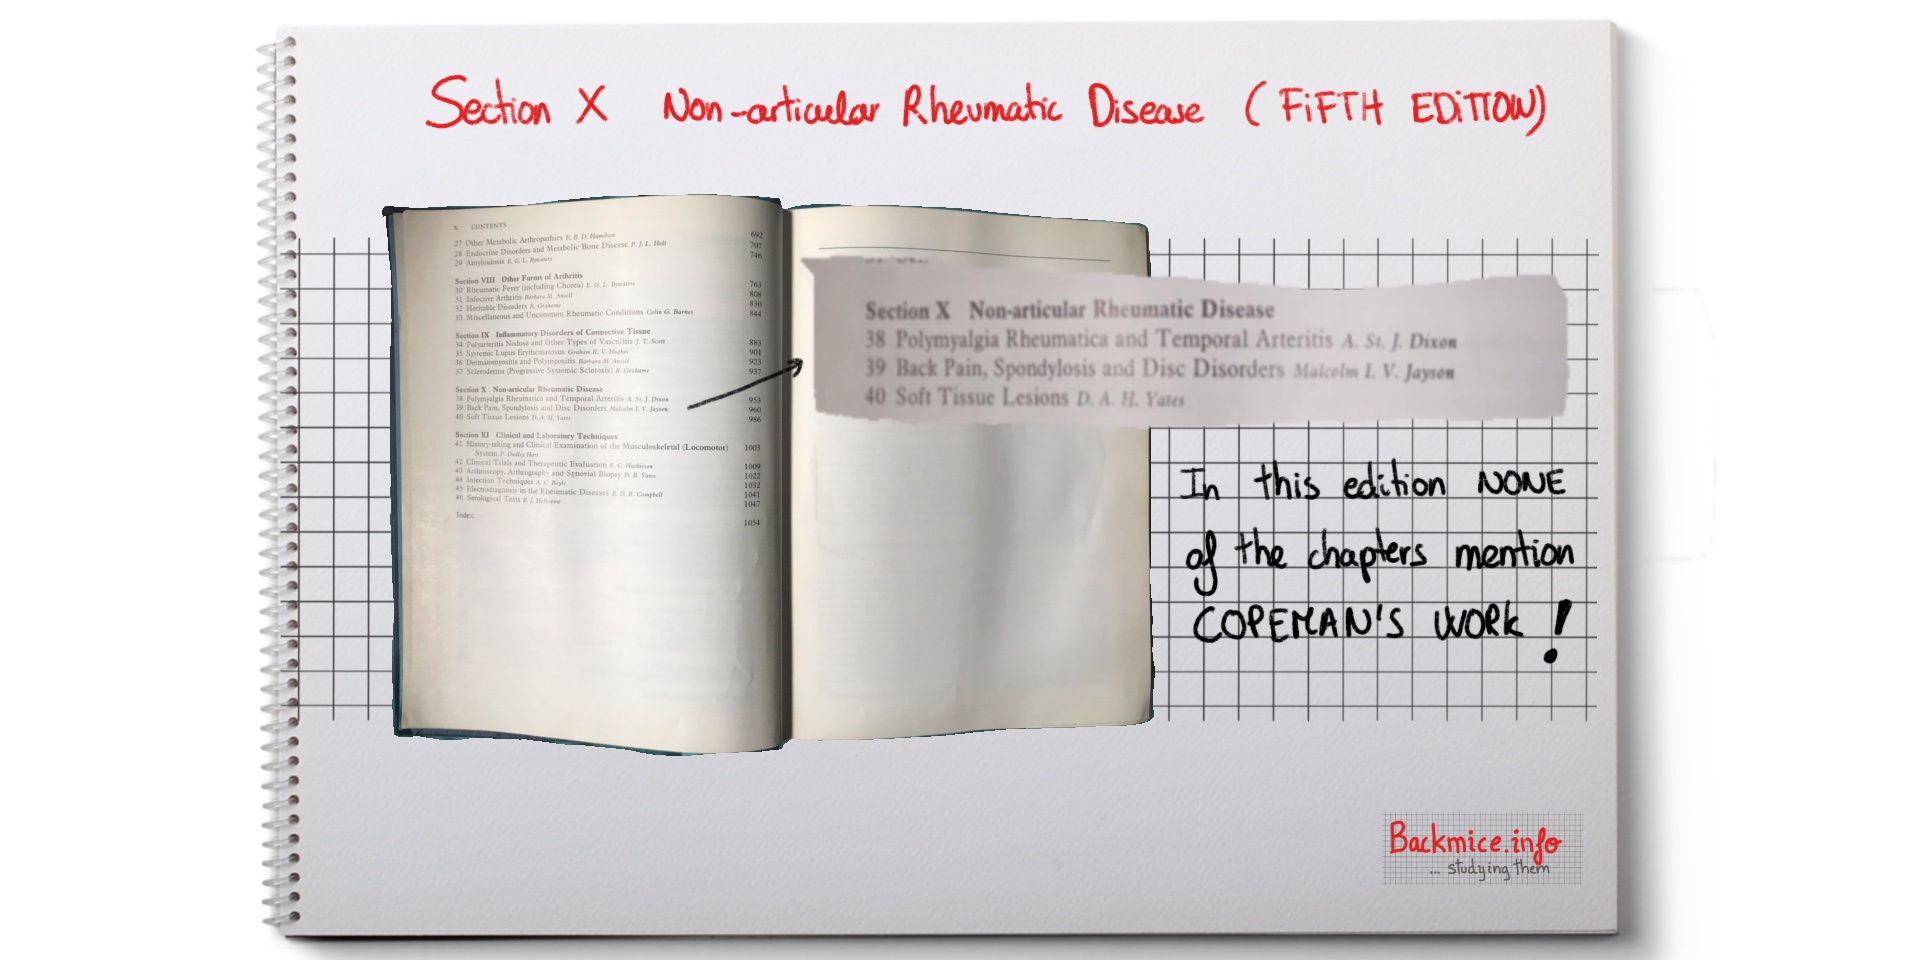 Section X Non-articular Rheumatic Disease (FiFTH EDiTION)
x CONTENTS
27 Other Metabolic Arthropathies E. B. D. Hamilton 692
28 Endocrine Disorders and Metabolic Bone Disease P. J. L. Holt 707
29 Amyloidosis E. G. L. Bywaters 746
Section VIII Other Forms of Arthritis
30 Rheumatic Fever (including Chorea) E. G. L. Bywaters 763
31 Infective Arthritis Barbara M. Ansell 808
32 Heritable Disorders R. Grahame 830
33 Miscellaneous and Uncommon Rheumatic Conditions Colin G. Barnes 844
Section IX Inflammatory Disorders of Connective Tissue
34 Polyarteritis Nodosa and Other Types of Vasculitis J. T. Scott 883
35 Systemic Lupus Erythematosus Graham R. V. Hughes 901
36 Dermatomyositis and Polymyositis Barbara M. Ansell 923
37 Scleroderma (Progressive Systemic Sclerosis) R. Grahame 937
Section X Non-articular Rheumatic Disease
38 Polymyalgia Rheumatica and Temporal Arteritis A. St. J. Dixon 953
39 Back Pain, Spondylosis and Disc Disorders Malcolm I. V. Jayson 960
40 Soft Tissue Lesions D. A. H. Yates 986
Section XI Clinical and Laboratory Techniques
41 History-taking and Clinical Examination of the Musculoskeletal (Locomotor) 1003
System F. Dudley Hart
42 Clinical Trials and Therapeutic Evaluation E. C. Huskisson 1009
43 Arthroscopy, Arthrography and Synovial Biopsy D. B. Yates 1022
44 Injection Techniques A. C. Boyle 1032
45 Electrodiagnosis in the Rheumatic Diseases E. D. R. Campbell 1041
46 Serological Tests E. J. Holborow 1047
Index 1054
Section X Non-articular Rheumatic Disease
38 Polymyalgia Rheumatica and Temporal Arteritis A. St. J. Dixon
39 Back Pain, Spondylosis and Disc Disorders Malcolm I. V. Jayson
40 Soft Tissue Lesions D. A. H. Yates
In this edition NONE
of the chapters mention
COPEMAN'S WORK !
Backmice.info
... studying them